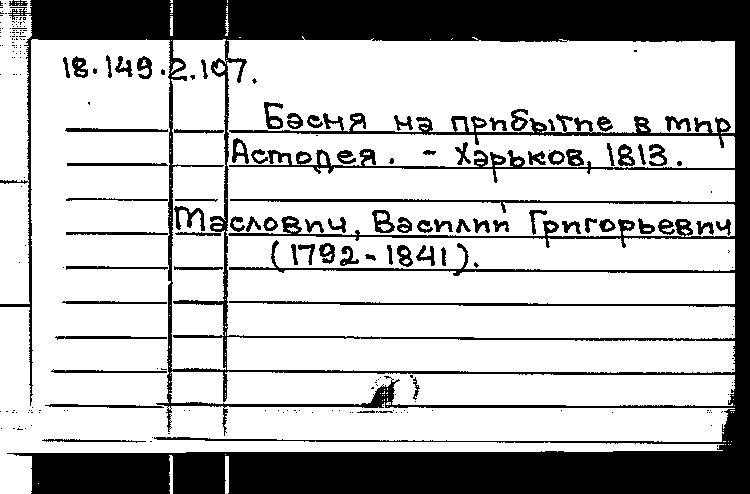 18.149.2.107.
Басня на прибытие в мир
Астодея. - Харьков, 1813.
Маслович, Василий Григорьевич
(1792-1841).